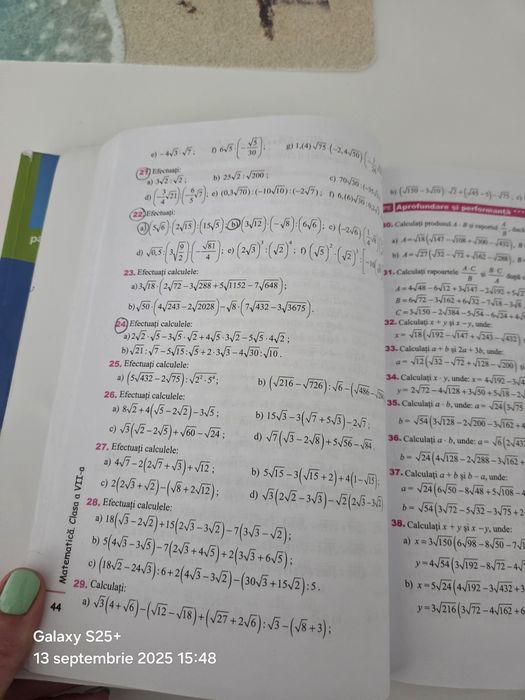 e) −4√3·√7;  f) 6√5·(−√5/30);  g) 1,(4)√75·(−2,4√50)
21. Efectuați:
a) 3√2 : √2;  b) 25√2 : √200;  c) 70√50
d) (−3/4 √21):(−6/5 √7);  e) (0,3√70):(−10√10):(−2√7);
22. Efectuați:
a) (5√6)·(2√15):(15√5);  b) (3√12)·(−√8):(6√6);  c) (−2√6)
d) √0,5 : 3√(9/2)·(−√81/4);  e) (2√3)³:(√2)⁴;  f) (√5)²·(√2)³
23. Efectuați calculele:
a) 3√18·(2√72−3√288+5√1152−7√648);
b) √50·(4√243−2√2028)−√8·(7√432−3√3675).
24. Efectuați calculele:
a) 2√2·√5−3√5·√2+4√5·3√2−5√5·4√2;
b) √21:√7−5√15:√5+2·3√3−4√30:√10.
25. Efectuați calculele:
a) (5√432−2√75):√2²·5⁴;  b) (√216−√726):√6−(√486
26. Efectuați calculele:
a) 8√2+4(√5−2√2)−3√5;  b) 15√3−3(√7+5√3)−2√7;
c) √3(√2−2√5)+√60−√24;  d) √7(√3−2√8)+5√56−√84.
27. Efectuați calculele:
a) 4√7−2(2√7+√3)+√12;  b) 5√15−3(√15+2)+4(1−√15);
c) 2(2√3+√2)−(√8+2√12);  d) √3(2√2−3√3)−√2(2√3−3√2)
28. Efectuați calculele:
a) 18(√3−2√2)+15(2√3−3√2)−7(3√3−√2);
b) 5(4√3−3√5)−7(2√3+4√5)+2(3√3+6√5);
c) (18√2−24√3):6+2(4√3−3√2)−(30√3+15√2):5.
29. Calculați:
a) √3(4+√6)−(√12−√18)+(√27+2√6):√3−(√8+3);
Matematică. Clasa a VII-a
44
b) (√150−3√10)·√2+(√45−5)·√75;
Aprofundare și performanță
30. Calculați produsul A·B și raportul A/B, dacă
a) A=√18(√147−√108+√300−√432),
b) A=√27(√32−√72+√162−√288),
31. Calculați rapoartele A·C/B și B·C/A, după
A=4√48−6√12+3√147−2√192+5√
B=6√72−3√162+6√32−7√18−3√8
C=3√150−2√384−5√54−6√24+4√
32. Calculați x+y și x−y, unde:
x=√18(√192−√147+√243−√432)
33. Calculați a+b și 2a+3b, unde:
a=√12(√32−√72+√128−√200)
34. Calculați x·y, unde: x=4√192−3√
y=2√72−4√128+3√50+5√18−2√
35. Calculați a·b, unde: a=√24(3√75
b=√54(3√128−2√200−3√162+4
36. Calculați a·b, unde: a=√6(2√432
b=√24(4√128−2√288−3√162+
37. Calculați a+b și b−a, unde:
a=√24(6√50−8√48+5√108−4
b=√54(3√72−5√32−3√75+2
38. Calculați x+y și x−y, unde:
a) x=3√150(6√98−8√50−7√
y=4√54(3√192−8√72−4√
b) x=5√24(4√192−3√432+3
y=3√216(3√72−4√162+6
Galaxy S25+
13 septembrie 2025 15:48